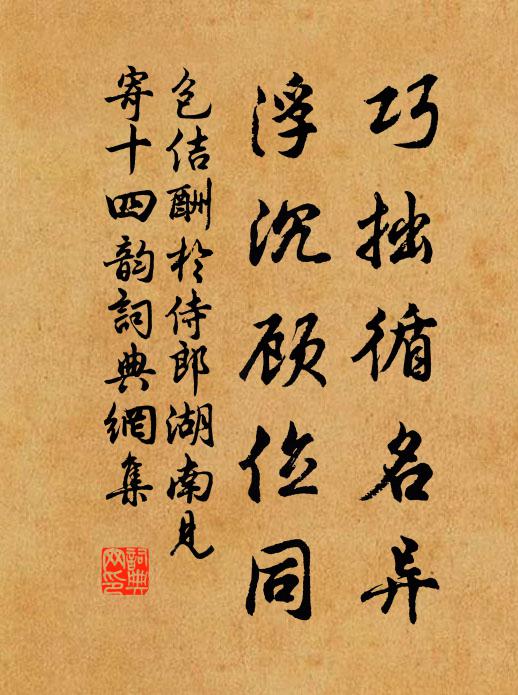 巧拙循名异
浮沉顾位同
包佶酬於侍郎湖南見
寄十四韵詞典網集
詞典
网印